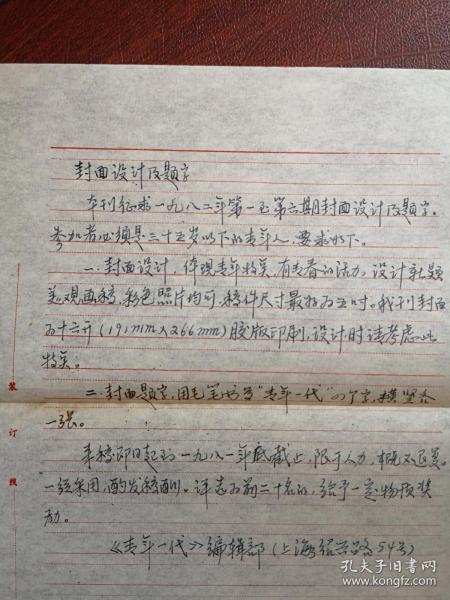 封面设计及题字
本刊征求一九八二年第一至第六期封面设计及题字。
参加者必须是三十五岁以下的青年人，要求如下。
一、封面设计，体现青年特点，有青春的活力，设计新颖
美观画稿，彩色照片均可，稿件尺寸最好为五吋。我刊封面
为十六开(191mm×266mm)胶版印刷，设计时请考虑此
特点。
二、封面题字，用毛笔书写"青年一代"四个字，横竖各
一张。
来稿即日起到一九八一年底截止，限于人力，概不退还。
一经采用，酌发稿酬。评为前二十名的，给予一定物质奖
励。
《青年一代》编辑部(上海绍兴路54号)
装
订
线
孔夫子旧书网
www.kongfz.com